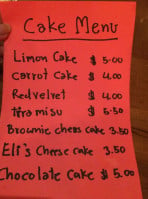 Cake Menu
Limon Cake $ 5.00
Carrot Cake $ 4.00
Redvelvet $ 4.00
tira misu $ 5.50
Brownie chees cake 3.50
Eli's Cheese cake 3.50
Chocolate Cake $ 5.00